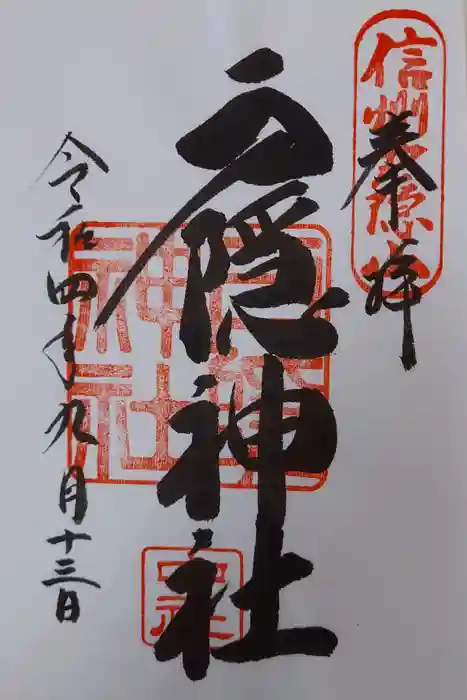 信州戸隠
奉拝
戸隠神社
戸隠神社
令和四年九月十三日